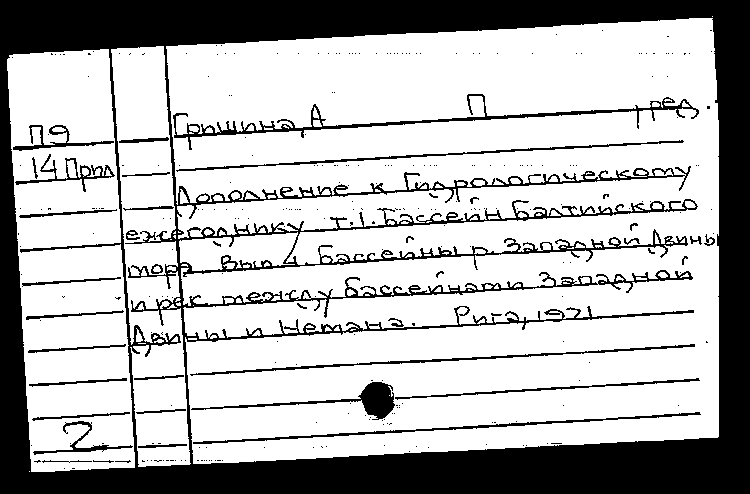 П9 Гришина, А П , ред.
14 Прил
Дополнение к Гидрологическому
ежегоднику т.1. Бассейн Балтийского
моря Вып 4. Бассейны р. Западной Двины
и рек между бассейнами Западной
Двины и Немана. Рига, 1971
2